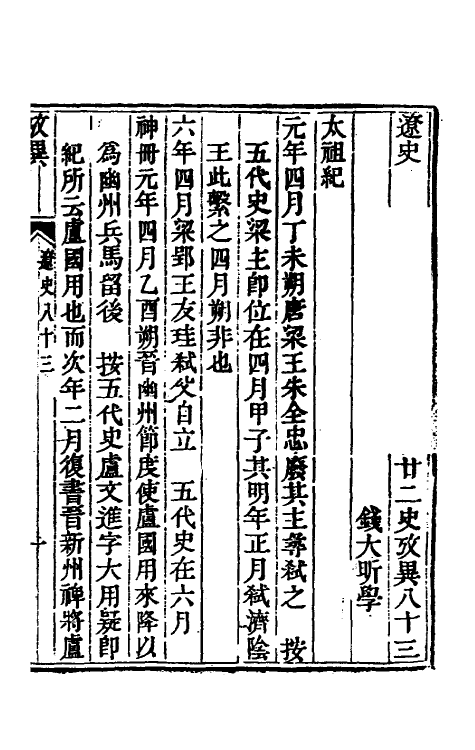 遼史　廿二史攷異八十三
錢大昕學
太祖紀
元年四月丁未朔唐梁王朱全忠廢其主尋弑之　按
五代史梁主卽位在四月甲子其明年正月弑濟陰
王此繫之四月朔非也
六年四月梁郢王友珪弑父自立　五代史在六月
神冊元年四月乙酉朔晉幽州節度使盧國用來降以
爲幽州兵馬留後　按五代史盧文進字大用疑卽
紀所云盧國用也而次年二月復書晉新州裨將盧
攷異　遼史八十三　一